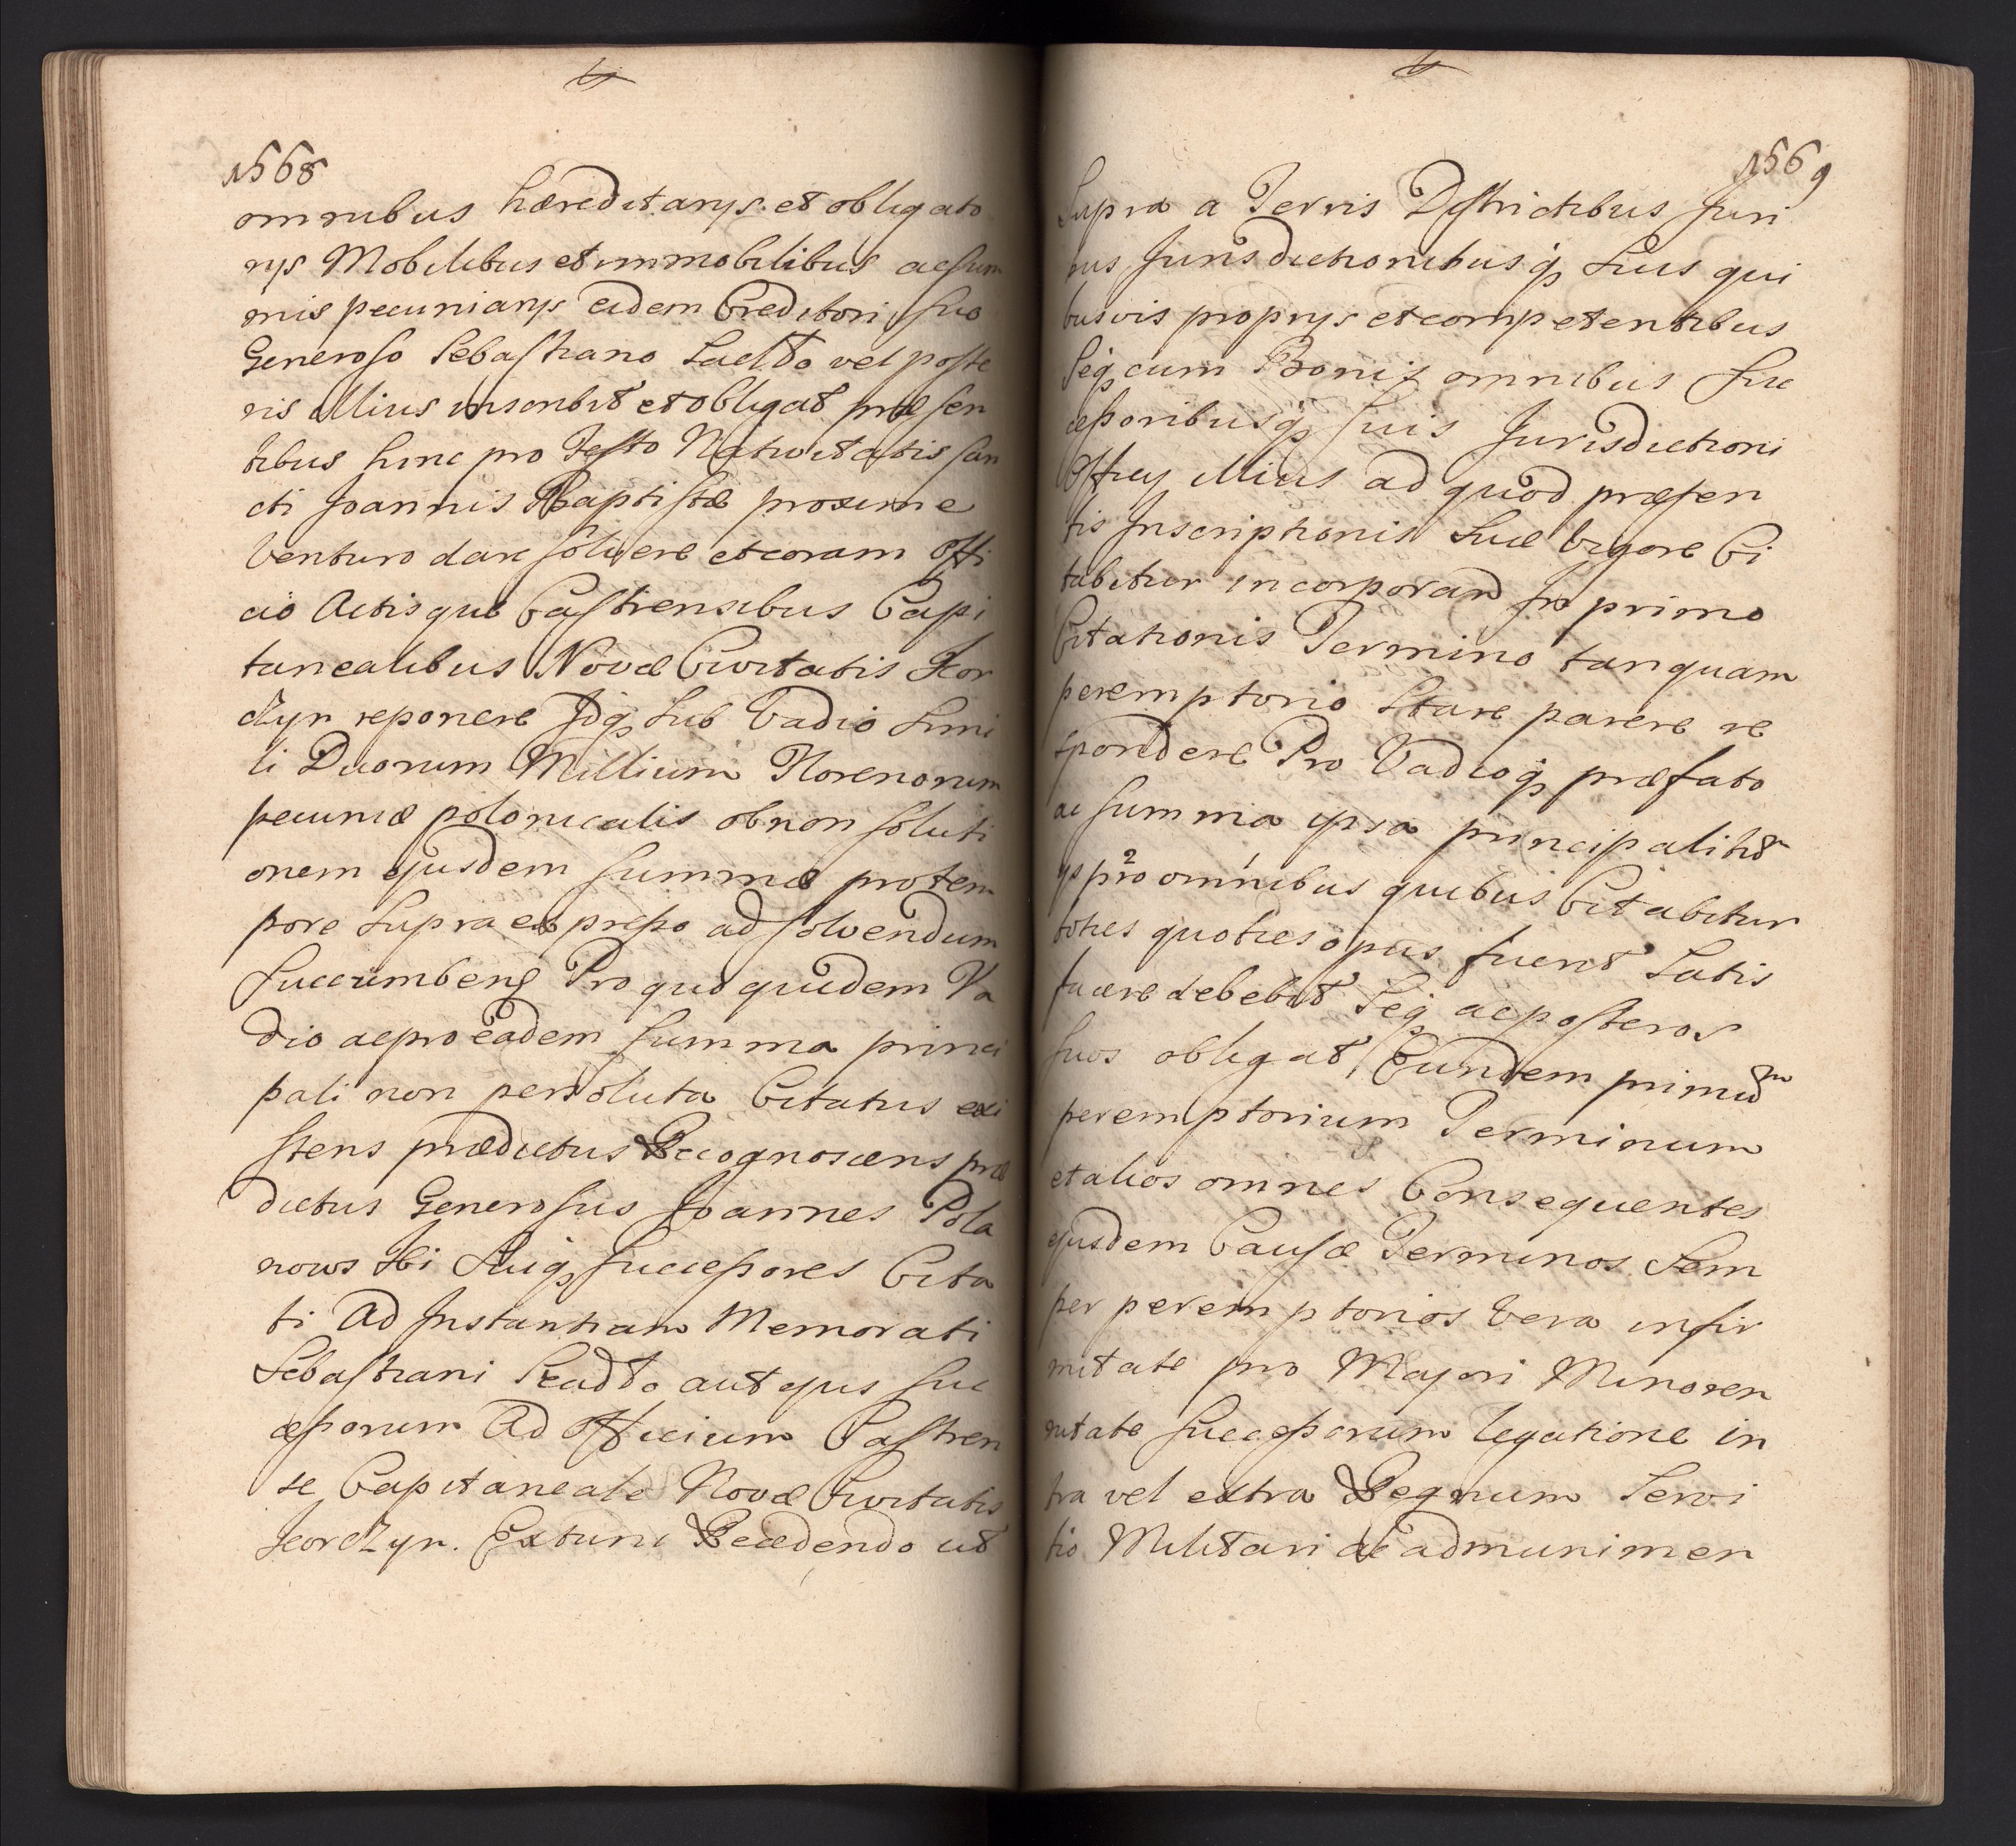 1568
omnibus hæreditarys et obligato
rys Mobilibus et immobilibus ac sum
mis pecuniarys eidem Creditori suo
Generoso Sebastiano vel poste
ris illius inscribit et obligat præsen
tibus hinc pro Festo Nativitatis san
cti Joannis Baptistæ proxime
Venturo dare solvere et coram Offi
cio Actisque Castrensibus Capi
tanealibus Novæ Civitatis Kor
czyn reponere Idq sub Vadio simi
li Duorum Millium Florenorum
pecuniæ polonicalis ob non soluti
onem ejusdem summæ pro tem
pore supra expresso ad solvendum
succumbens Pro quo quidem Va
dio ac pro eadem summa princi
pali non persoluta Citatus exi
stens prædictus Recognoscens præ
dictus Generosus Joannes Pola
nows Ibi Suiq successores Cita
ti Ad Instantiam Memorati
Sebastiani aut ejus suc
cessorum Ad Officium Castren
se Capitaneale Novæ Civitatis
Korczyn. Extunc Recedendo ut
1569
Supra a Terris Districtibus Juri
bus Jurisdictionibusq Suis qui
busvis proprys et competentibus
Seq cum Bonis omnibus suc
cessoribusq suis Jurisdictioni
Officy illius ad quod præsen
tis Inscriptionis Suæ vigore Ci
tabitur incorporand In primo
Citationis Termino tanquam
peremptorio Stare parere re
spondere Pro Vadioq præfato
ac summa ipsa principali
pro omnibus quibus Citabitur
toties quoties opus fuerit Satis
facere debebit Seq ac posteros
suos obligat Eundem primum
peremptorium Terminum
et alios omnes Consequentes
ejusdem Causæ Terminos Sem
per peremptorios Vera infir
mitate pro Majori Minoren
nitate successorum legatione in
tra vel extra Regnum Servi
tio Militari ac admunimen